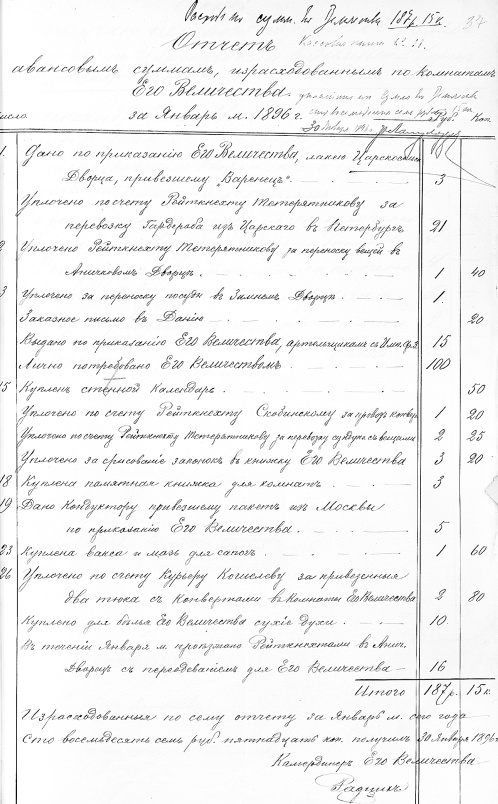 сумм. 187р. 15к.
37
Отчетъ
авансовымъ суммамъ, израсходованнымъ по комнатамъ
Его Величества
за Январь м. 1896 г.
Число Руб. Коп.
1. Дано по приказанію Его Величества, лакею Царскосельск.
Дворца, привезшему "Варенецъ" 3
Уплочено по счету Рейткнехту Тетерятникову за
перевозку Гардероба изъ Царскаго въ Петербургъ 21
2 Уплочено Рейткнехту Тетерятникову за переноску вещей въ
Аничковомъ Дворцѣ 1 40
3 Уплочено за переноску посуды въ Зимнемъ Дворцѣ 1.
Заказное письмо въ Данію 20
Выдано по приказанію Его Величества, артельщикамъ съ Имп. 15
Лично потребовано Его Величествомъ 100
15 Купленъ стѣнной Календарь 50
Уплочено по счету Рейткнехту Скобинскому за провозъ 1 20
Уплочено по счету Рейткнехту Тетерятникову за перевозку сундука съ вещами 2 25
Уплочено за срисованіе запонокъ въ книжку Его Величества 3 20
18 Куплена памятная книжка для комнатъ 3
19 Дано Кондуктору привезшему пакетъ изъ Москвы
по приказанію Его Величества 5
23 Куплена вакса и мазь для сапогъ 1 60
26 Уплочено по счету Курьеру Кошелову за привезенныя
два тюка съ Конвертами въ Комнаты Его Величества 2 80
Куплено для бѣлья Его Величества сухіе духи 10.
Въ теченіи Января м. Рейткнехтами въ Анич.
Дворецъ съ переодеваніемъ для Его Величества 16
Итого 187р. 15к.
Израсходованныя по сему отчету за Январь м. сего года
сто восемьдесятъ семь руб. пятнадцать коп. получилъ 30 Января 1896 г.
Камердинеръ Его Величества
Радцихъ